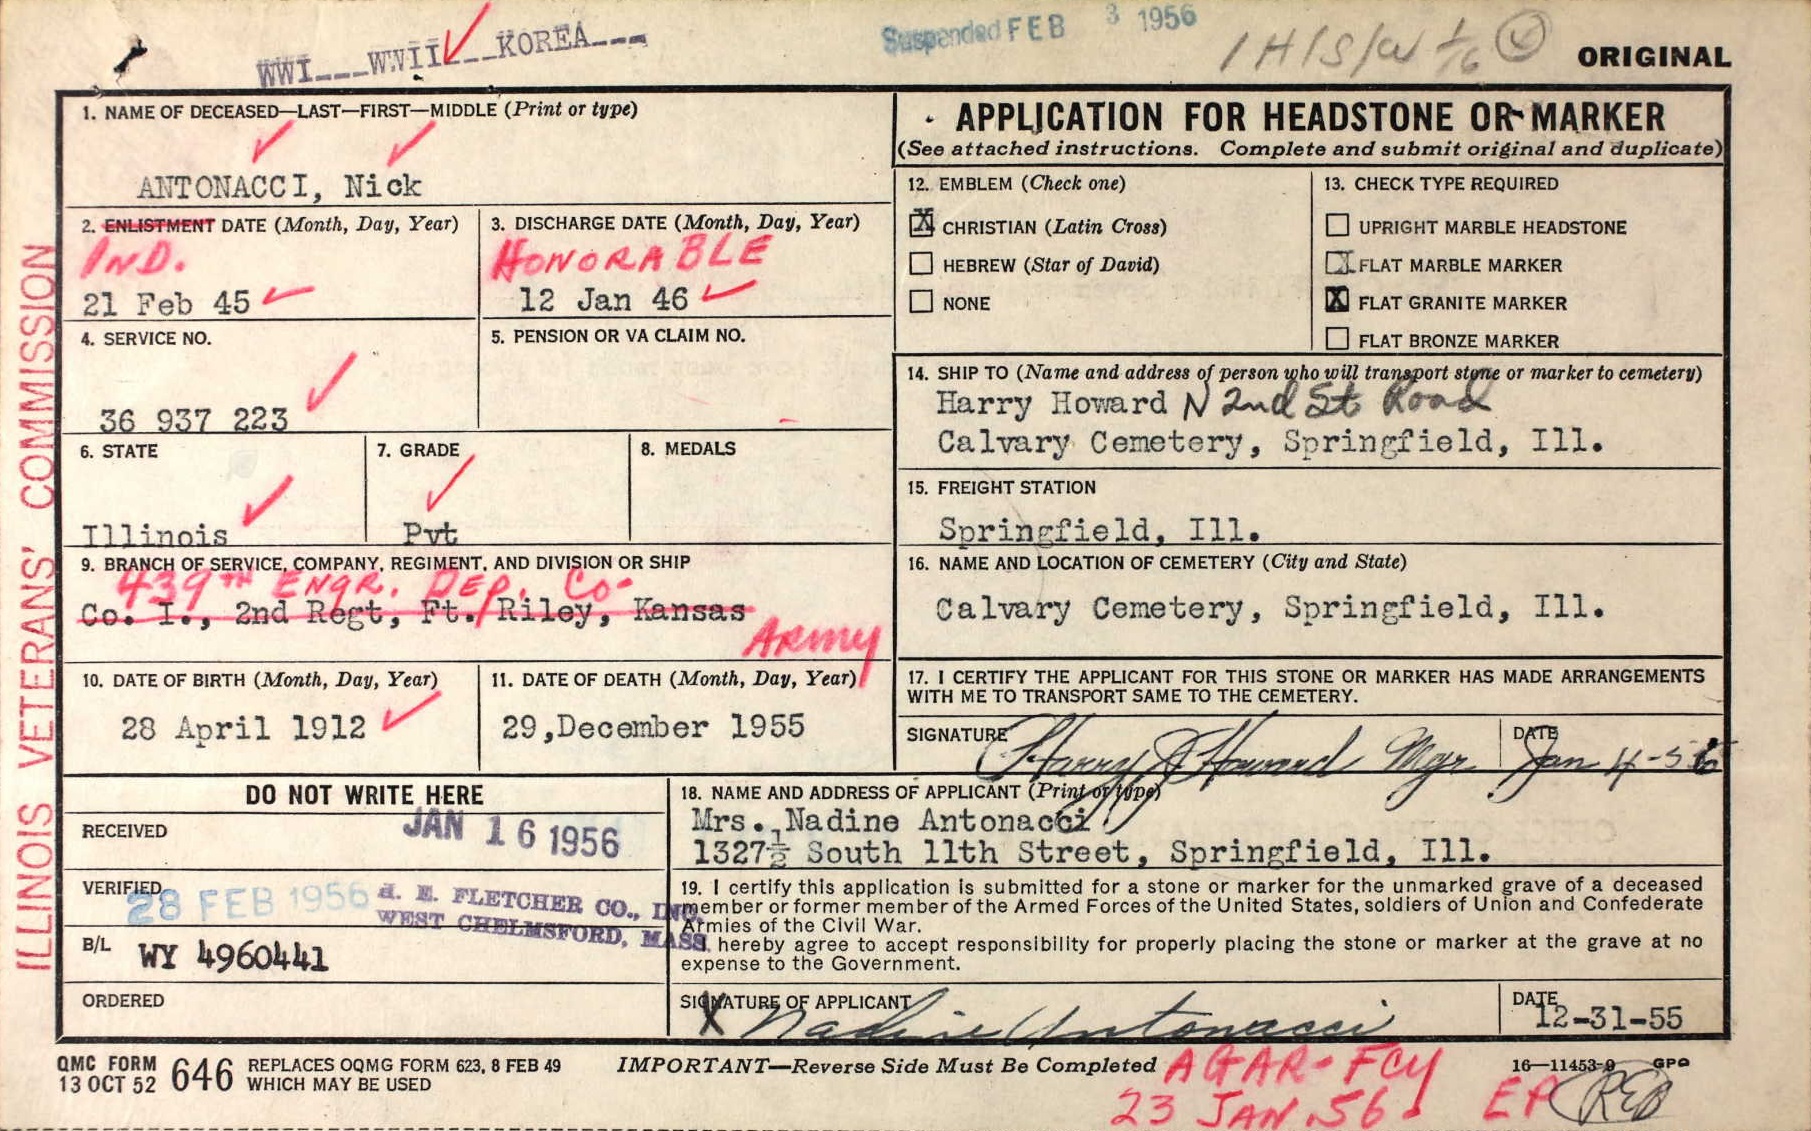 WWI---WWII---KOREA---
Suspended FEB 3 1956
ORIGINAL
ILLINOIS VETERANS' COMMISSION
1. NAME OF DECEASED—LAST—FIRST—MIDDLE (Print or type)
ANTONACCI, Nick
2. ENLISTMENT DATE (Month, Day, Year)
IND.
21 Feb 45
3. DISCHARGE DATE (Month, Day, Year)
HONORABLE
12 Jan 46
4. SERVICE NO.
36 937 223
5. PENSION OR VA CLAIM NO.
6. STATE
Illinois
7. GRADE
Pvt
8. MEDALS
9. BRANCH OF SERVICE, COMPANY, REGIMENT, AND DIVISION OR SHIP
439TH ENGR. DEP. Co.
Co. I., 2nd Regt, Ft. Riley, Kansas
ARMY
10. DATE OF BIRTH (Month, Day, Year)
28 April 1912
11. DATE OF DEATH (Month, Day, Year)
29,December 1955
APPLICATION FOR HEADSTONE OR MARKER
(See attached instructions. Complete and submit original and duplicate)
12. EMBLEM (Check one)
X CHRISTIAN (Latin Cross)
HEBREW (Star of David)
NONE
13. CHECK TYPE REQUIRED
UPRIGHT MARBLE HEADSTONE
FLAT MARBLE MARKER
X FLAT GRANITE MARKER
FLAT BRONZE MARKER
14. SHIP TO (Name and address of person who will transport stone or marker to cemetery)
Harry Howard N 2nd St Road
Calvary Cemetery, Springfield, Ill.
15. FREIGHT STATION
Springfield, Ill.
16. NAME AND LOCATION OF CEMETERY (City and State)
Calvary Cemetery, Springfield, Ill.
17. I CERTIFY THE APPLICANT FOR THIS STONE OR MARKER HAS MADE ARRANGEMENTS
WITH ME TO TRANSPORT SAME TO THE CEMETERY.
SIGNATURE Harry J Howard Mgr
DATE Jan 4-56
DO NOT WRITE HERE
RECEIVED JAN 16 1956
VERIFIED 28 FEB 1956
H. E. FLETCHER CO., INC.
WEST CHELMSFORD, MASS.
B/L WY 4960441
ORDERED
18. NAME AND ADDRESS OF APPLICANT (Print or type)
Mrs. Nadine Antonacci
1327½ South 11th Street, Springfield, Ill.
19. I certify this application is submitted for a stone or marker for the unmarked grave of a deceased
member or former member of the Armed Forces of the United States, soldiers of Union and Confederate
Armies of the Civil War.
I hereby agree to accept responsibility for properly placing the stone or marker at the grave at no
expense to the Government.
SIGNATURE OF APPLICANT
X Nadine Antonacci
DATE
12-31-55
QMC FORM
13 OCT 52 646
REPLACES OQMG FORM 623, 8 FEB 49
WHICH MAY BE USED
IMPORTANT—Reverse Side Must Be Completed
16—11453-9 GPO
AGAR-FCY
23 JAN. 56
EP
REB